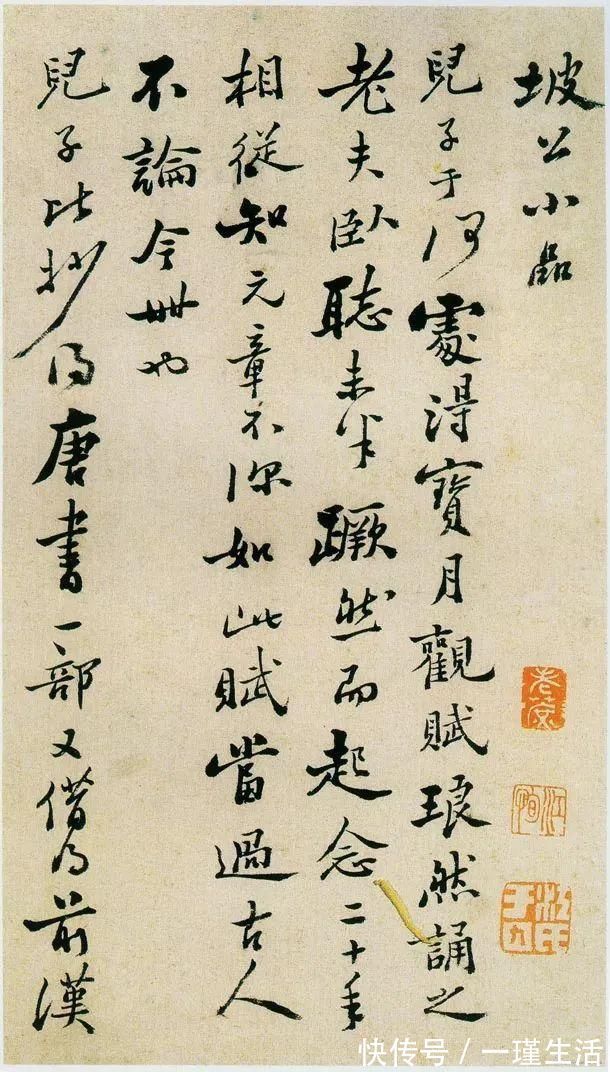 坡公小品
兒子于何處得寶月觀賦琅然誦之
老夫臥聽未半蹶然而起念二十年
相從知元章不深如此賦當過古人
不論今世也
兒子比抄得唐書一部又借得前漢
快传号 / 一瑾生活